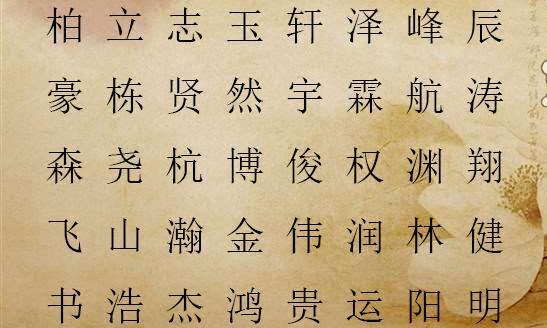 柏 立 志 玉 轩 泽 峰 辰
豪 栋 贤 然 宇 霖 航 涛
森 尧 杭 博 俊 权 渊 翔
飞 山 瀚 金 伟 润 林 健
书 浩 杰 鸿 贵 运 阳 明